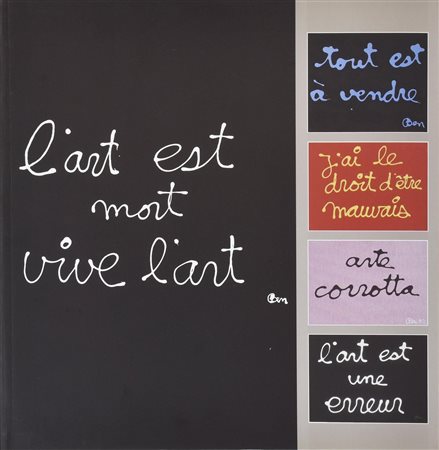 l'art est
mort
vive l'art
Ben
tout est
à vendre
Ben
j'ai le
droit d'être
mauvais
arte
corrotta
Ben
l'art est
une
erreur